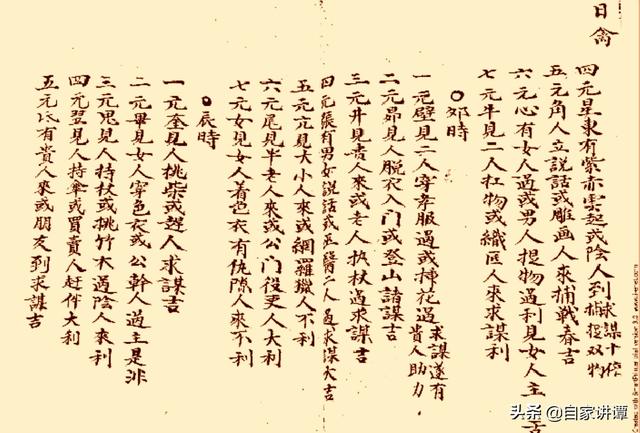 日禽
四元星東有紫赤雲起或陰人到求謀十
五元角人立説話或雕画人來捕戰春吉
六元心有女人過或男人提物過利見女人主吉
七元牛見二人扛物或織匠人來求謀利
卯時
一元壁見二人穿孝服過或挿花過求謀遂有貴人助力
二元昴見人脱衣入门或登山請謀吉
三元井見貴人來或老人执杖過求謀吉
四元張有男女説話或巫醫二人過求謀大吉
五元亢見大小人來或網羅獵人不利
六元尾見半老人來或公门役吏人大利
七元女見女人着色衣有仇隙人來不利
辰時
一元奎見人挑柴或趕人求謀吉
二元畢見女人穿色衣或公幹人過主是非
三元鬼見人持杖或挑竹木過陰人來利
四元翌見人持傘或買賣人赶伴大利
五元氐有貴人來或朋友到求謀吉
头条@自家讲谭